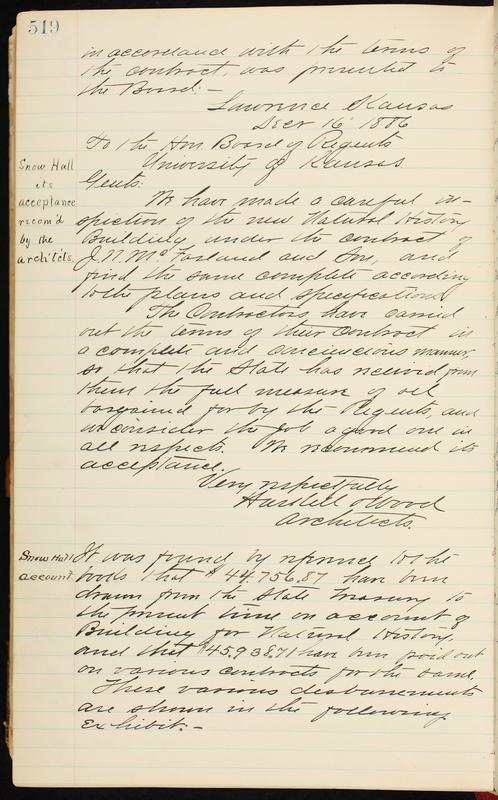 519
in accordance with the terms of
the contract, was presented to
the Board:-
Lawrence Kansas
Decr 16 1886
To the Hon. Board of Regents
University of Kansas
Gents:
Snow Hall
its
acceptance
recom'd
by the
architects.
We have made a careful in-
spection of the new Natural History
Building under the contract of
J.N. McFarland and Son, and
find the same complete according
to the plans and specifications.
The Contractors have carried
out the terms of their contract in
a complete and conciencious manner,
so that the State has received from
them the full measure of all
bargained for by the Regents, and
we consider the job a good one in
all respects. We recommend its
acceptance.
Very respectfully
Haskell & Wood
Architects.
Snow Hall
account.
It was found by reference to the
books that $44.756.87 have been
drawn from the State Treasury to
the present time on account of
Building for Natural History,
and that $45.938.71 have been paid out
on various contracts for the same.
These various disbursements
are shown in the following
Exhibit:-